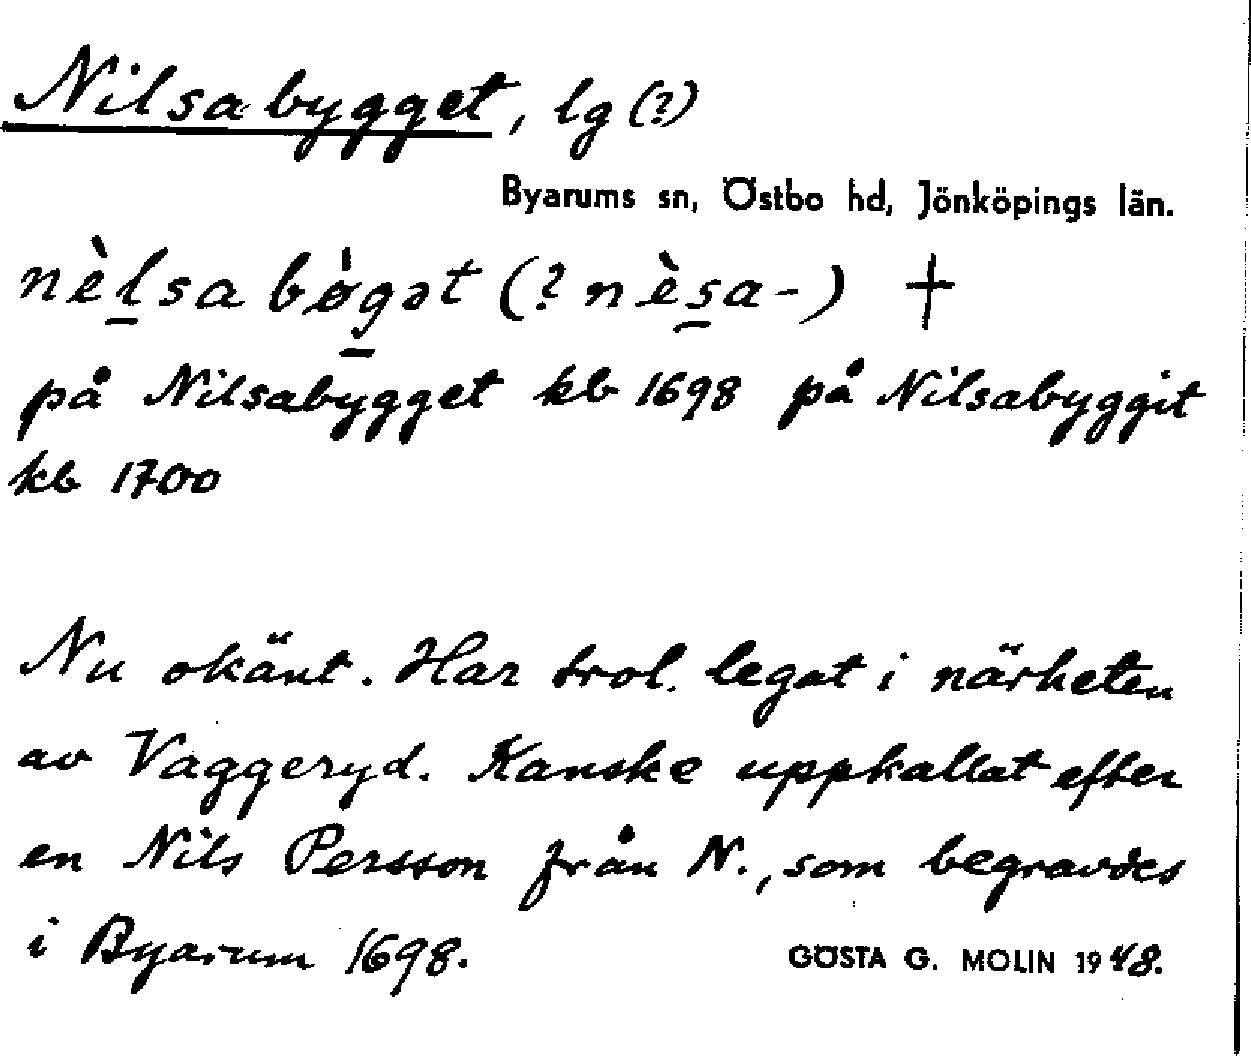 Nilsabygget, lg (?)
Byarums sn, Östbo hd, Jönköpings län.
nèlsabø̀gət (? nèsa-) +
på Nilsabygget kb 1698 på Nilsabyggit
kb 1700
Nu okänt. Har trol. legat i närheten
av Vaggeryd. Kanske uppkallat efter
en Nils Persson från N., som begravdes
i Byarum 1698.
GÖSTA G. MOLIN 1948.